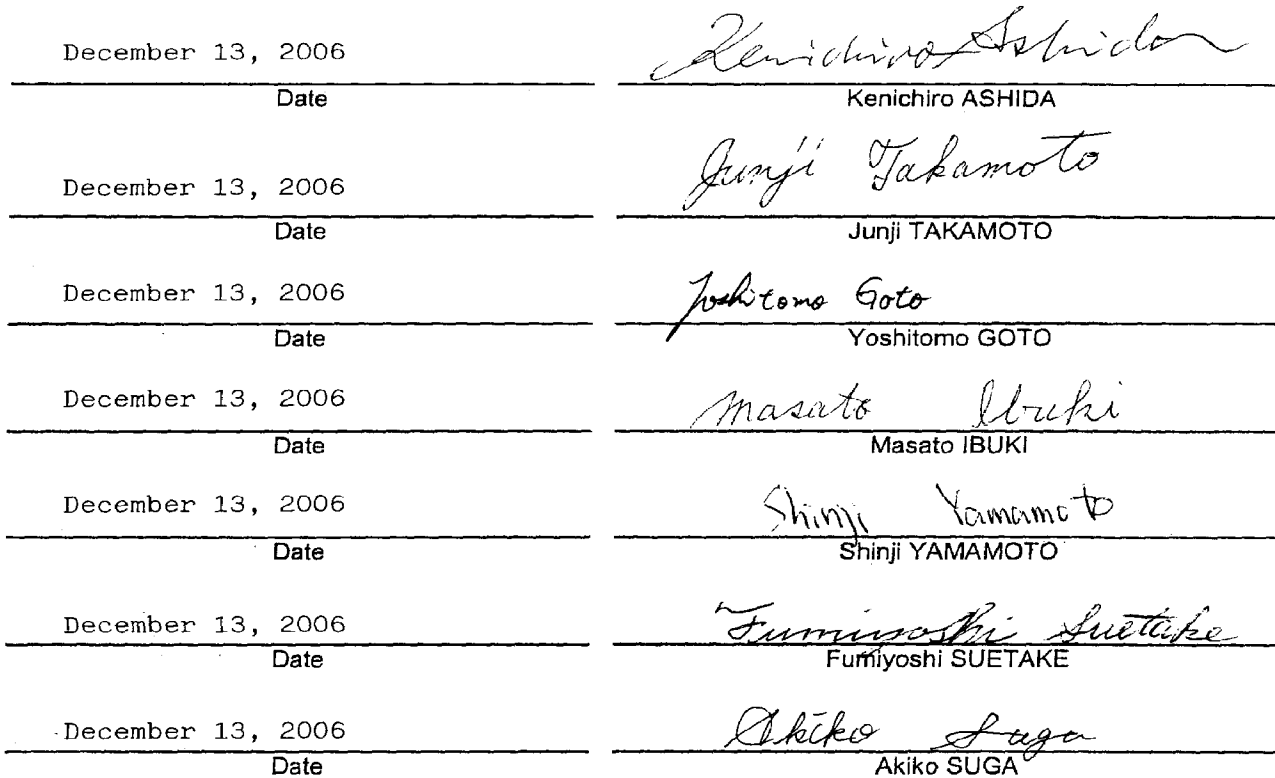 December 13, 2006 Kenichiro Ashida
Date Kenichiro ASHIDA
December 13, 2006 Junji Takamoto
Date Junji TAKAMOTO
December 13, 2006 Yoshitomo Goto
Date Yoshitomo GOTO
December 13, 2006 Masato Ibuki
Date Masato IBUKI
December 13, 2006 Shinji Yamamoto
Date Shinji YAMAMOTO
December 13, 2006 Fumiyoshi Suetake
Date Fumiyoshi SUETAKE
December 13, 2006 Akiko Suga
Date Akiko SUGA